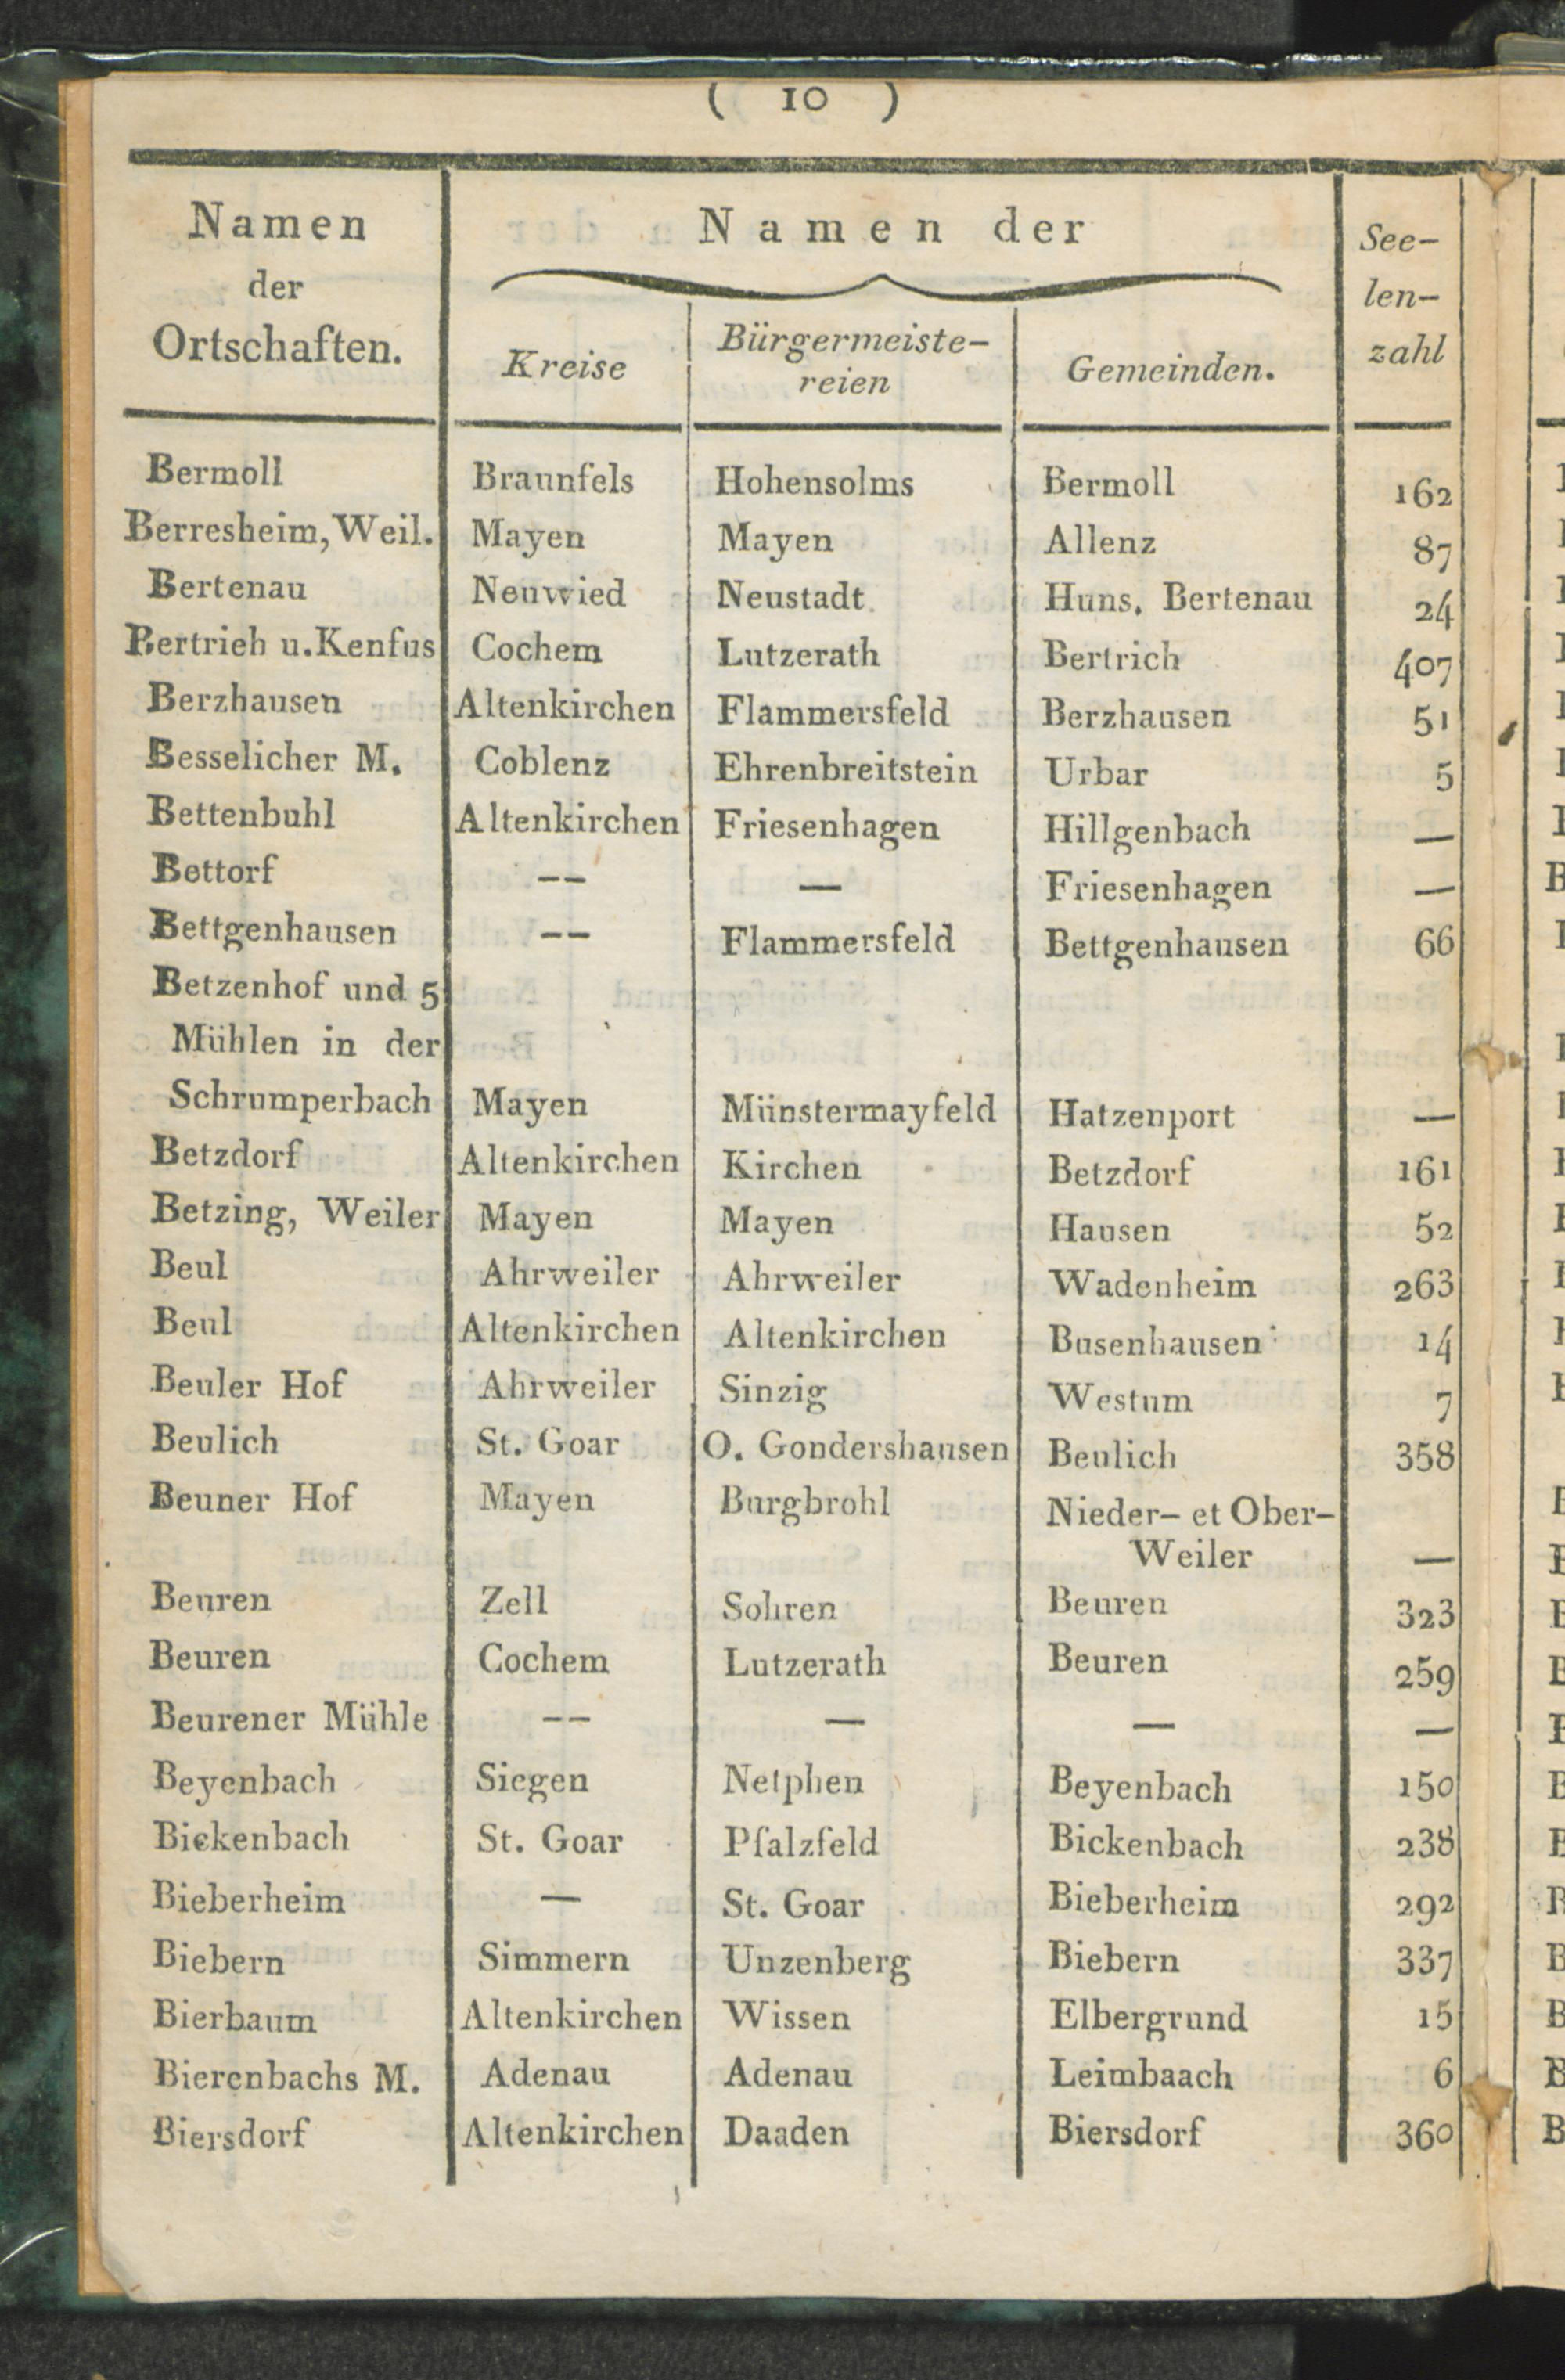 ( 10 )
Namen der Ortschaften. | Namen der | See-
Kreise | Bürgermeiste- | Gemeinden. | len-
reien | zahl
Bermoll | Braunfels | Hohensolms | Bermoll | 162
Berresheim, Weil. | Mayen | Mayen | Allenz | 87
Bertenau | Neuwied | Neustadt | Huns. Bertenau | 24
Bertrieh u. Kenfus | Cochem | Lutzerath | Bertrich | 407
Berzhausen | Altenkirchen | Flammersfeld | Berzhausen | 51
Besselicher M. | Coblenz | Ehrenbreitstein | Urbar | 5
Bettenbuhl | Altenkirchen | Friesenhagen | Hillgenbach | —
Bettorf | -- | — | Friesenhagen | —
Bettgenhausen | -- | Flammersfeld | Bettgenhausen | 66
Betzenhof und 5
Mühlen in der
Schrumperbach | Mayen | Münstermayfeld | Hatzenport | —
Betzdorf | Altenkirchen | Kirchen | Betzdorf | 161
Betzing, Weiler | Mayen | Mayen | Hausen | 52
Beul | Ahrweiler | Ahrweiler | Wadenheim | 263
Beul | Altenkirchen | Altenkirchen | Busenhausen | 14
Beuler Hof | Ahrweiler | Sinzig | Westum | 7
Beulich | St. Goar | O. Gondershausen | Beulich | 358
Beuner Hof | Mayen | Burgbrohl | Nieder- et Ober-
Weiler | —
Beuren | Zell | Sohren | Beuren | 323
Beuren | Cochem | Lutzerath | Beuren | 259
Beurener Mühle | -- | — | — | —
Beyenbach | Siegen | Netphen | Beyenbach | 150
Bickenbach | St. Goar | Pfalzfeld | Bickenbach | 238
Bieberheim | — | St. Goar | Bieberheim | 292
Biebern | Simmern | Unzenberg | Biebern | 337
Bierbaum | Altenkirchen | Wissen | Elbergrund | 15
Bierenbachs M. | Adenau | Adenau | Leimbaach | 6
Biersdorf | Altenkirchen | Daaden | Biersdorf | 360